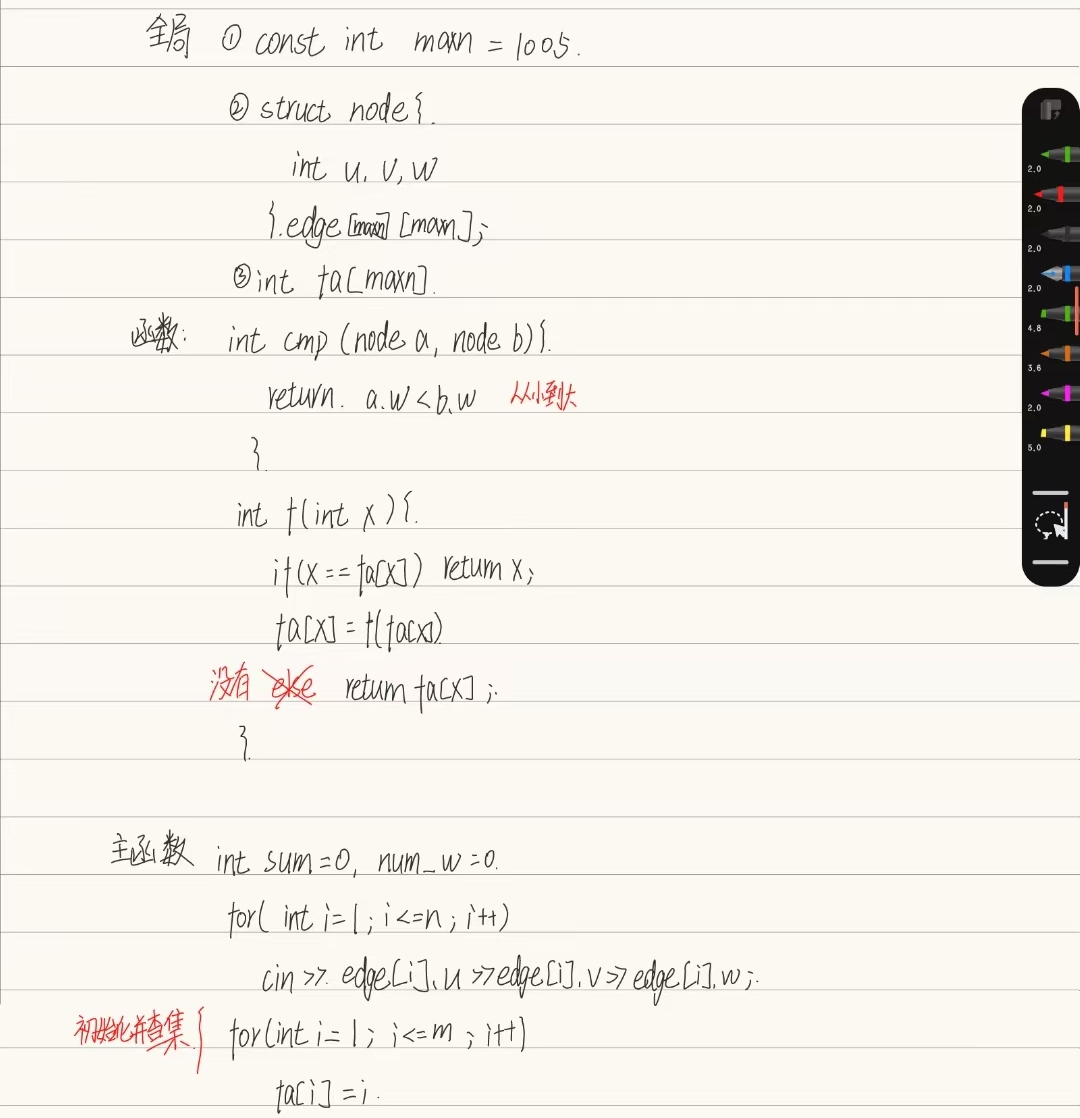 全局 ① const int maxn = 1005.
② struct node{.
int u, v, w
}.edge [maxn] [maxn];
③ int fa[maxn].
函数: int cmp (node a, node b){.
return. a.w < b.w 从小到大
}.
int f(int x){.
if(x == fa[x]) return x;
fa[x] = f(fa[x])
没有 else return fa[x];.
}.
主函数 int sum=0, num_w=0.
for( int i=1; i<=n; i++)
cin >>. edge[i].u >> edge[i].v >> edge[i].w;.
初始化并查集 { for(int i=1; i<=m; i++)
fa[i] = i.
2.0
2.0
2.0
2.0
4.8
3.6
2.0
5.0